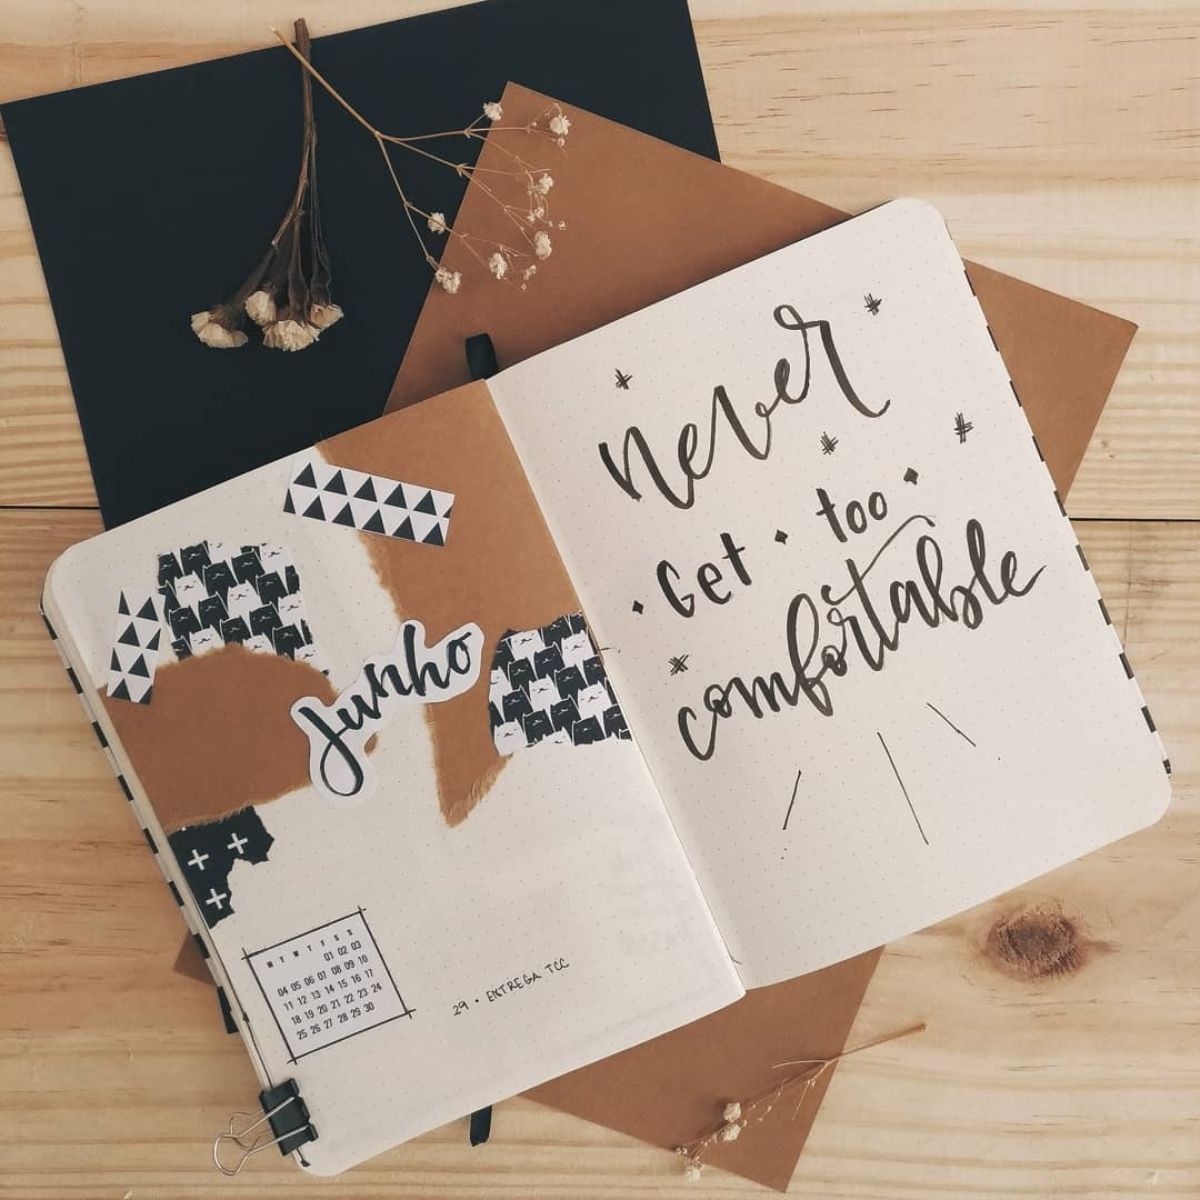 Junho
M T W T F S S
01 02 03
04 05 06 07 08 09 10
11 12 13 14 15 16 17
18 19 20 21 22 23 24
25 26 27 28 29 30
29 • ENTREGA TCC
never
Get • too
comfortable